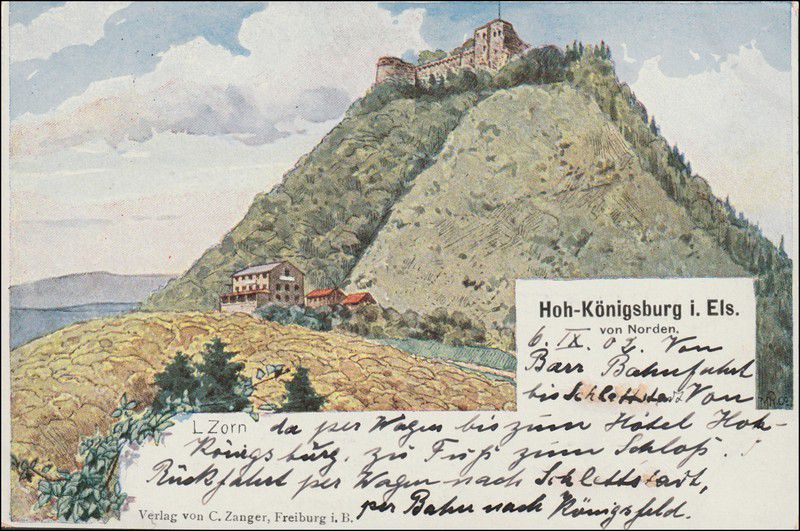 Hoh-Königsburg i. Els.
von Norden.
6. IX. 02. Von
Barr Bahnfahrt
bis Schlettstadt Von
L. Zorn
da per Wagen bis zum Hôtel Hoh-
Königsburg, zu Fuß zum Schloß.
Rückfahrt per Wagen nach Schlettstadt,
per Bahn nach Königsfeld.
Verlag von C. Zanger, Freiburg i. B.